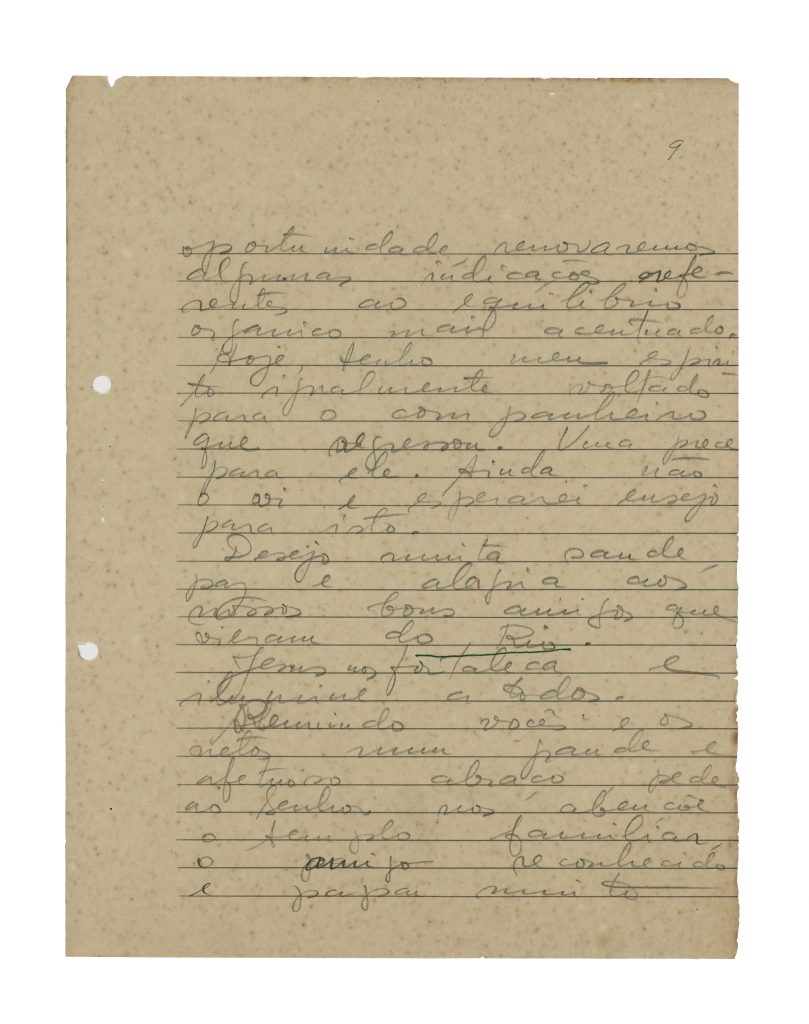 9
oportunidade, renovaremos
algumas indicações refe-
rentes ao equilibrio
organico mais acentuado.
Hoje, tenho meu espiri-
to igualmente voltado
para o companheiro
que regressou. Uma prece
para ele. Ainda não
o vi e esperarei ensejo
para isto.
Desejo muita saude,
paz e alegria aos
nossos bons amigos que
vieram do Rio.
Jesus nos fortaleça e
ilumine a todos.
Reunindo vocês e os
netos num grande e
afetuoso abraço, pede
ao Senhor nos abençoe
o templo familiar,
o amigo reconhecido
e papai muito